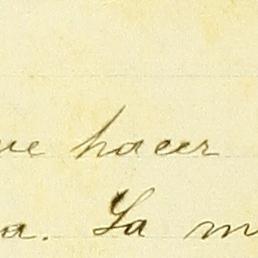 ue hacer
a. La m